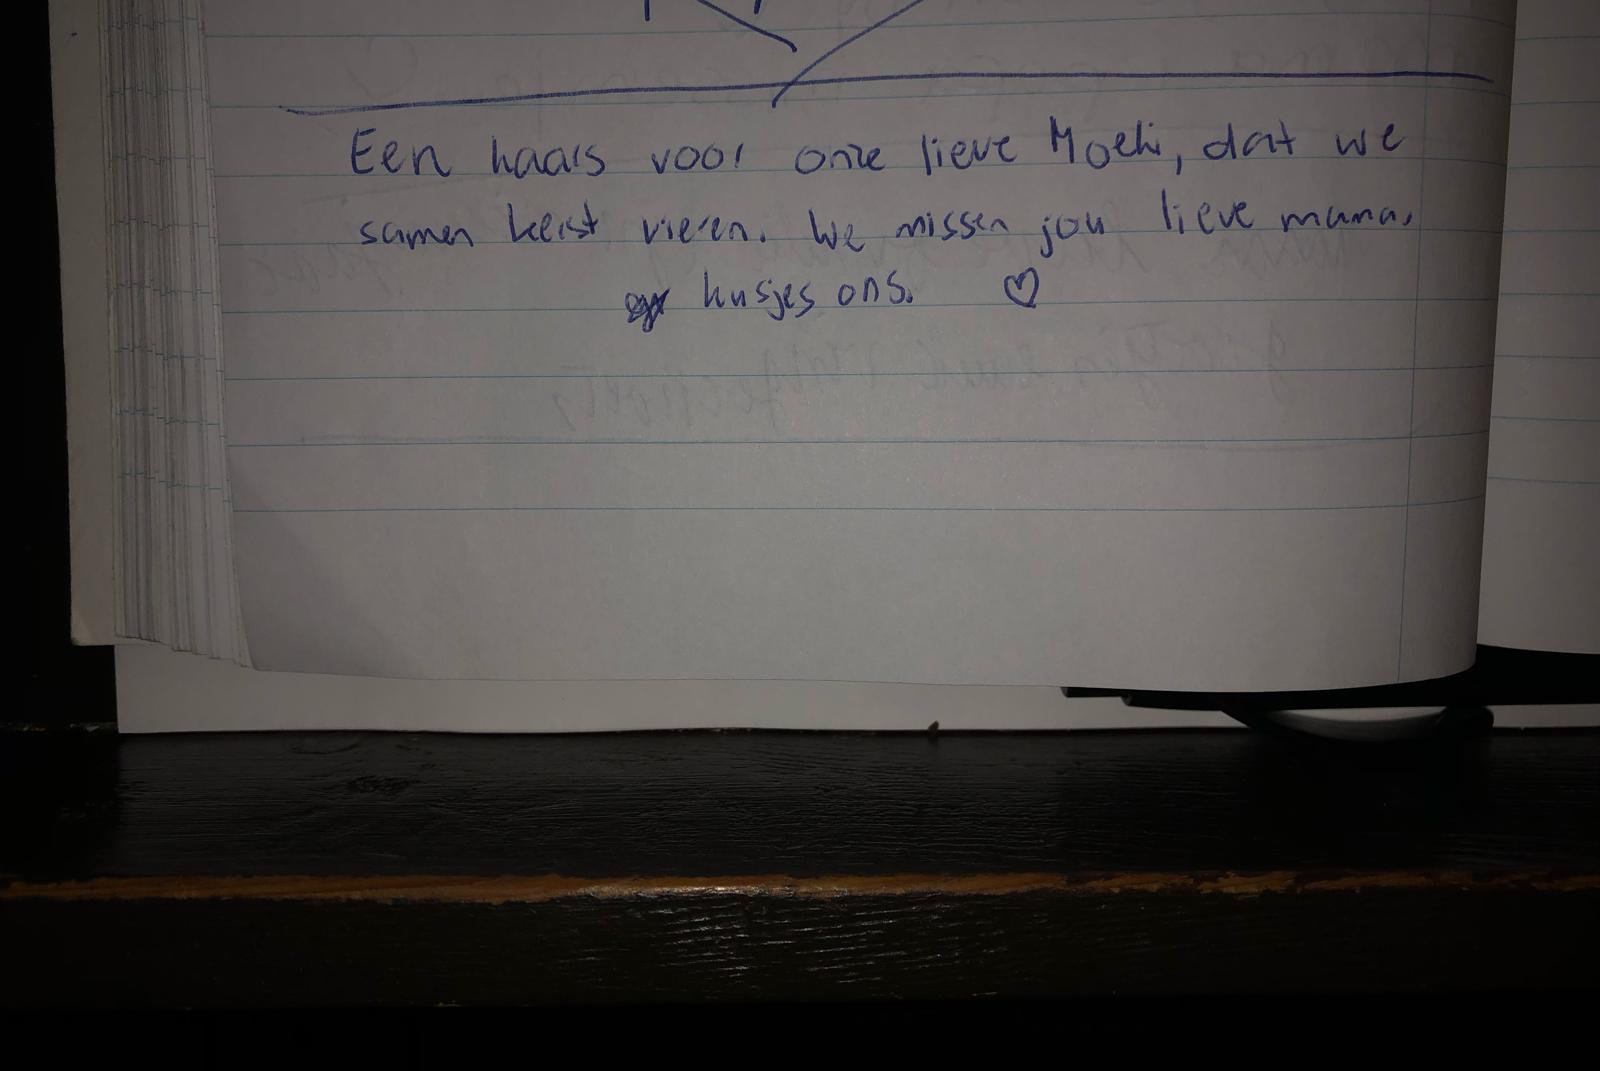 Een kaars voor onze lieve Moeki, dat we
samen kerst vieren. We missen jou lieve mama.
kusjes ons. ♡